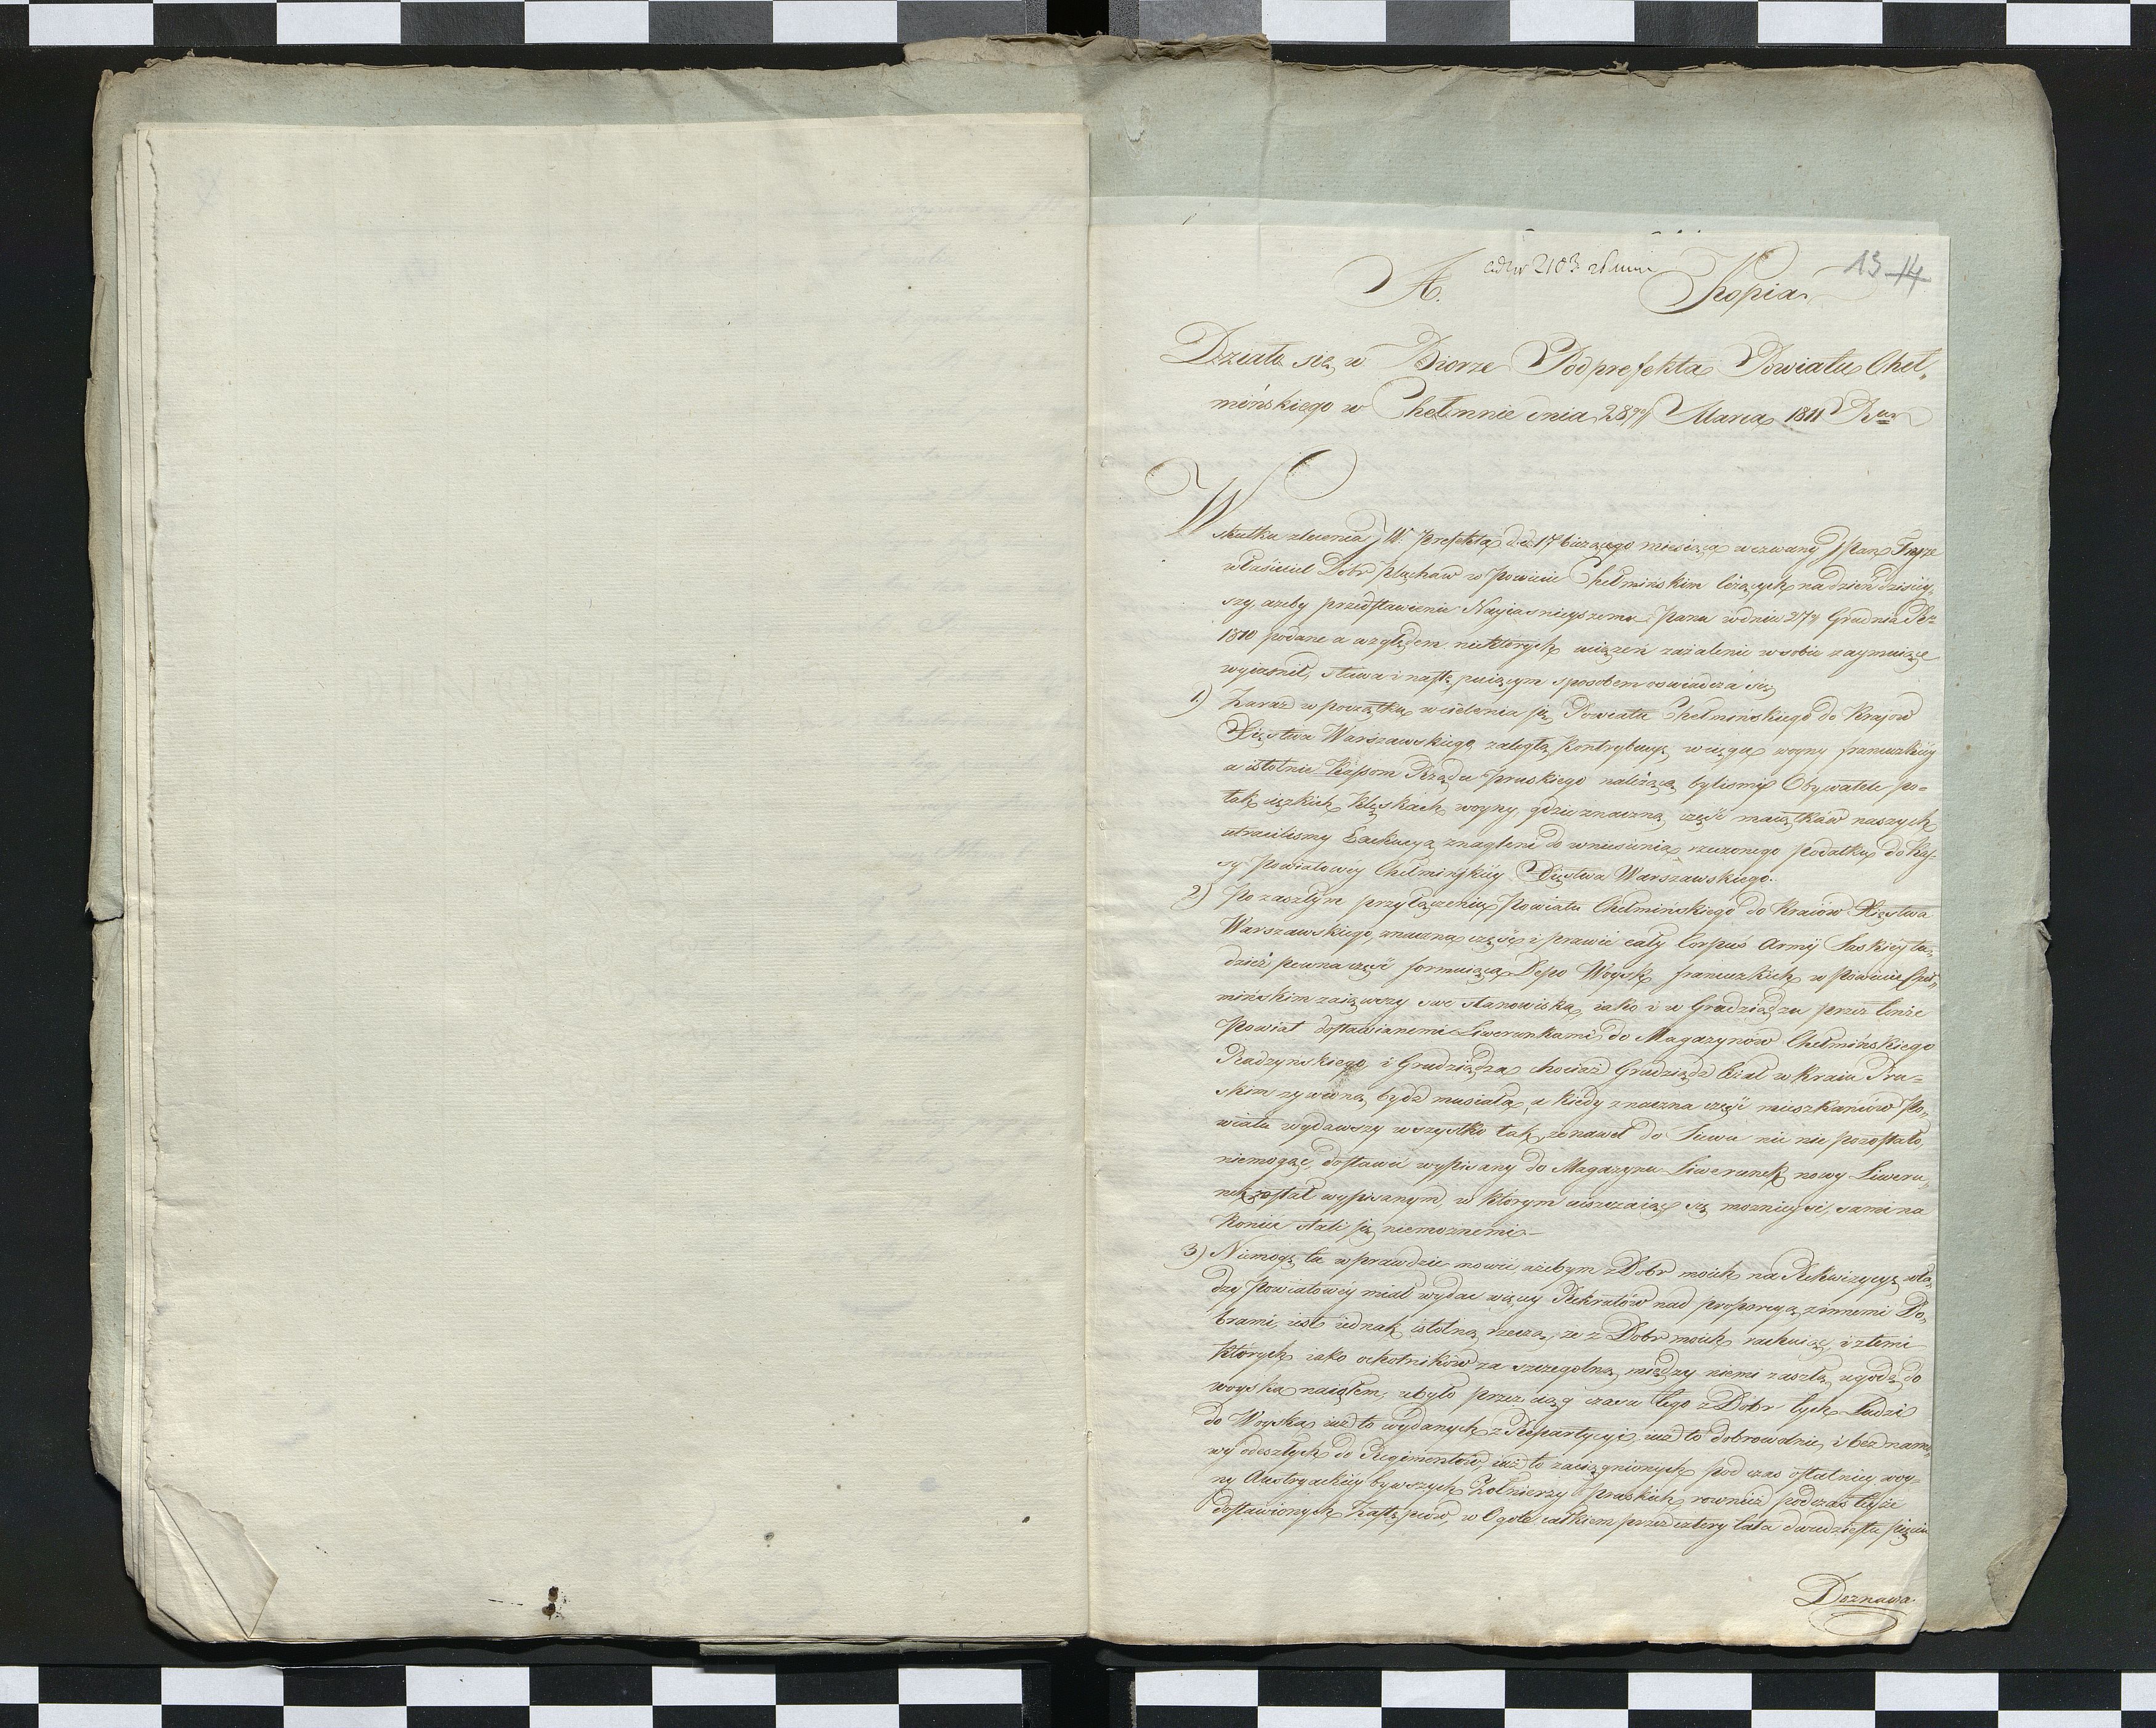 13 14
A. Kopia
Działo się w Biorze Podprefekta Powiatu Cheł„
mińskiego w Chełmnie dnia 28go Marca 1811 Ru
W skutku zlecenia JW. Prefekta d. d. 17 bieżącego miesiąca wezwany JPan
właściciel Dobr Płąchaw w Powiecie Chełmińskim leżących na dzień dzisiey„
szy, azeby przedstawienie Nayiasnieyszemu Panu w dniu 27 Grudnia Rz
1810 podane a względem niektorych uciążeń zażalenie w sobie zaymuiące
wyiasnił, stawa i nastę puiącym sposobem oswiadcza się
1) Zaraz w początku wcielenia się Powiatu Chełmińskiego do Krajow
Xięstwa Warszawskiego zaległą Kontrybucyę w ciągu woyny francuzkiey
a istotnie Kassom Rządu Pruskiego należącą bylismy Obywatele po=
tak ciężkich klęskach woyny, gdzie znaczną część maiątków naszych
utracilismy Exekucyą znagleni do wniesienia rzeczonego podatku do Kas„
sy Powiatowey Chełmińskiey Xięstwa Warszawskiego.
2) Po zaszłym przyłączeniu Powiatu Chełmińskiego do Kraiów Xięstwa
Warszawskiego, znaczna część i prawie cały Corpus Armÿ Saskiey tu„
dzież pewna część formuiąca Depo Woysk francuzkich w Powiecie Cheł„
mińskim zaiąwszy swe stanowiska, iako i w Grudziądzu przez tenże
Powiat dostawianemi Liwerunkami do Magazynów Chełmińskiego
Radzynskiego i Grudziądza chociaż Grudziądz leżał w Kraiu Pru=
skim zywioną bydź musiała, a kiedy znaczna część mieszkańców Po„
wiatu wydawszy wszystko tak, ze nawet do Siewu nic nie pozostało,
niemogąc dostawić wypisany do Magazynu Liwerunek nowy Liweru„
nek został wypisanym, w którym uiszczaiąc się moznieysi, sami na
koniec stali się niemoznemi.—
3) Niemogę tu wprawdzie mowić, ażebym z Dobr moich na Rekwizycyę wła„
dzy Powiatowey miał wydac więcey Rekrutów nad proporcyą z innemi Do„
brami, iest iednak istotną rzeczą, że z Dobr moich rachuiąc i z temi
których iako ochotników za szczegolną między niemi zaszłą ugodą do
woyska naiąłem, ubyło przez ciąg czasu tego z Dobr tych Ludzi
do Woyska iuż to wydanych z Repartycyi, iuż to dobrowolnie i bez namo„
wy odeszłych do Regimentów, iuż to zaciągnionych pod czas ostatniey woy„
ny Austryackiey bywszych Zołnierzy Pruskich, rownież podczas teyże
dostawionych Zastępców, w Ogole całkiem przez cztery lata dwudziestu pięciu
Doznawa